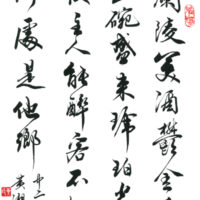 蘭陵美酒鬱金
碗盛来琥珀光
使主人能醉客不
何處是他鄉